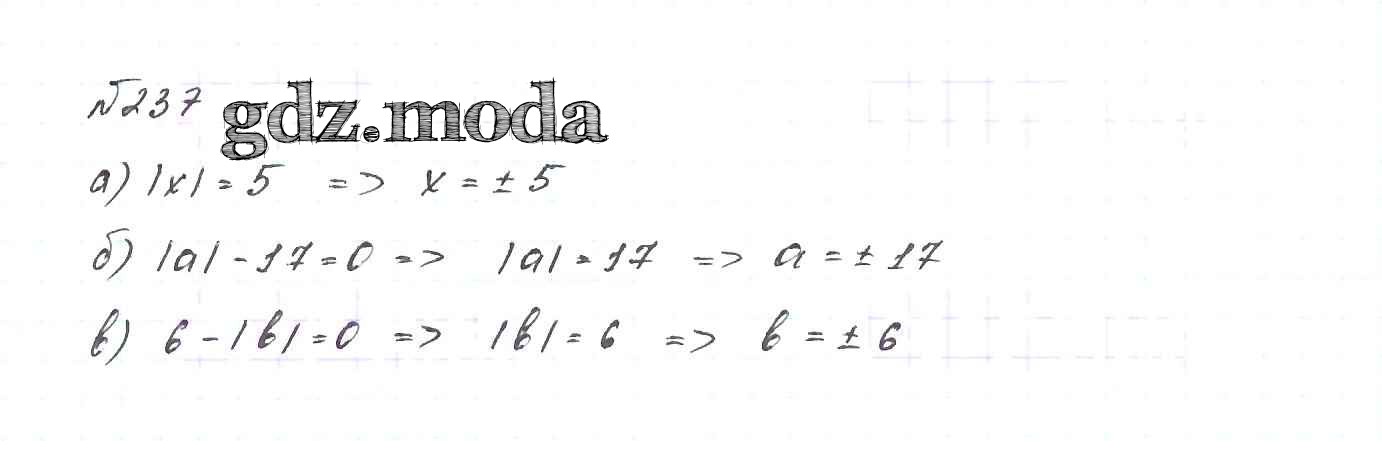 №237 gdz.moda
а) |x| = 5 => x = ± 5
б) |a| - 17 = 0 => |a| = 17 => a = ± 17
в) 6 - |b| = 0 => |b| = 6 => b = ± 6